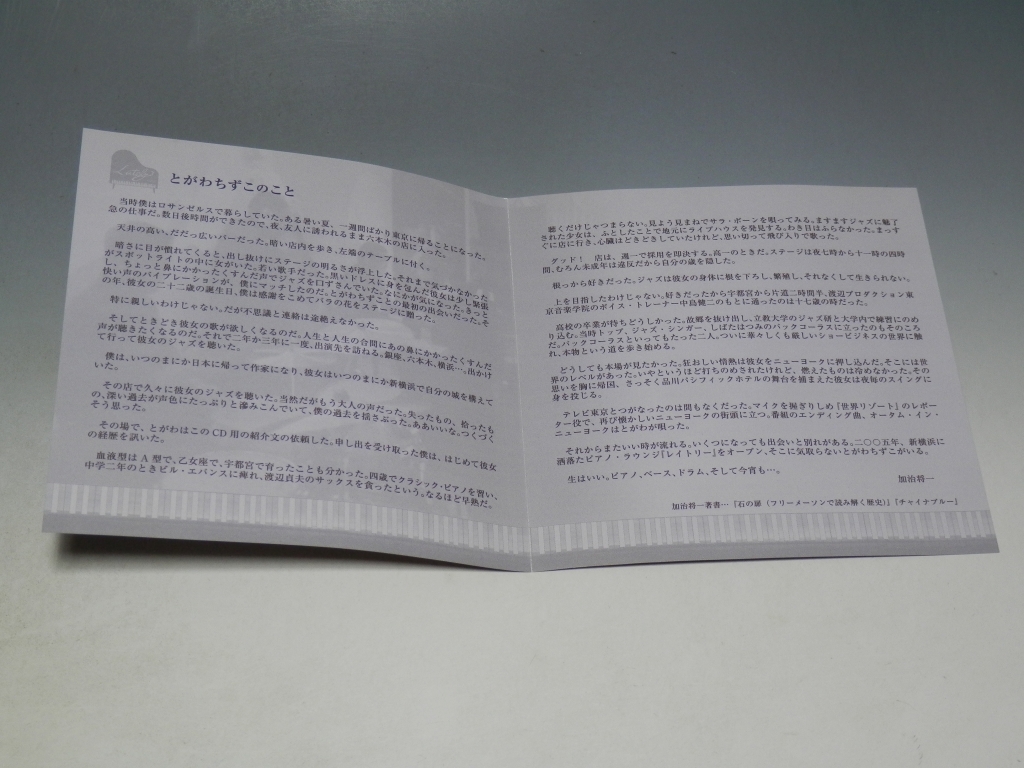 とがわちずこのこと
当時僕はロサンゼルスで暮らしていた。ある暑い夏、一週間ばかり東京に帰ることになった。
急の仕事だ。数日後時間ができたので、夜、友人に誘われるまま六本木の店に入った。
天井の高い、だだっ広いバーだった。暗い店内を歩き、左端のテーブルに付く。
暗さに目が慣れてくると、出し抜けにステージの明るさが浮上した。それまで気づかなかった
がスポットライトの中に女がいた。若い歌手だった。黒いドレスに身を包んだ彼女は少し緊張
し、ちょっと鼻にかかったくすんだ声でジャズを口ずさんでいた。なにかが気になった。きっと
快い声のバイブレーションが、僕にマッチしたのだ。とがわちずことの最初の出会いだった。そ
の年、彼女の二十二歳の誕生日、僕は感謝をこめてバラの花をステージに贈った。
特に親しいわけじゃない。だが不思議と連絡は途絶えなかった。
そしてときどき彼女の歌が欲しくなるのだ。人生と人生の合間にあの鼻にかかったくすんだ
声が聴きたくなるのだ。それで二年か三年に一度、出演先を訪ねる。銀座、六本木、横浜…。出かけ
て行って彼女のジャズを聴いた。
僕は、いつのまにか日本に帰って作家になり、彼女はいつのまにか新横浜で自分の城を構えて
いた。
その店で久々に彼女のジャズを聴いた。当然だがもう大人の声だった。失ったもの、拾ったも
の、深い過去が声色にたっぷりと滲みこんでいて、僕の過去を揺さぶった。ああいいな。つくづく
そう思った。
その場で、とがわはこのCD用の紹介文の依頼した。申し出を受け取った僕は、はじめて彼女
の経歴を訊いた。
血液型はA型で、乙女座で、宇都宮で育ったことも分かった。四歳でクラシック・ピアノを習い、
中学二年のときビル・エバンスに痺れ、渡辺貞夫のサックスを貪ったという。なるほど早熟だ。
聴くだけじゃつまらない。見よう見まねでサラ・ボーンを唄ってみる。ますますジャズに魅了
された少女は、ふとしたことで地元にライブハウスを発見する。わき目はふらなかった。まっす
ぐに店に行き、心臓はどきどきしていたけれど、思い切って飛び入りで歌った。
グッド! 店は、週一で採用を即決する。高一のときだ。ステージは夜七時から十一時の四時
間、むろん未成年は違反だから自分の歳を隠した。
根っから好きだった。ジャズは彼女の身体に根を下ろし、繁殖し、それなくして生きられない。
上を目指したわけじゃない。好きだったから宇都宮から片道二時間半、渡辺プロダクション東
京音楽学院のボイス・トレーナー中島健二のもとに通ったのは十七歳の時だった。
高校の卒業が待ちどうしかった。故郷を抜け出し、立教大学のジャズ研と大学内で練習にのめ
り込む。当時トップ、ジャズ・シンガー、しばたはつみのバックコーラスに立ったのもそのころ
だ。バックコーラスといってもたった二人。ついに華々しくも厳しいショービジネスの世界に触
れ、本物という道を歩き始める。
どうしても本場が見たかった。狂おしい情熱は彼女をニューヨークに押し込んだ。そこには世
界のレベルがあった。いやというほど打ちのめされたけれど、燃えたものは冷めなかった。その
思いを胸に帰国、さっそく品川パシフィックホテルの舞台を捕まえた彼女は夜毎のスイングに
身を投じる。
テレビ東京とつながったのは間もなくだった。マイクを握ぎりしめ『世界リゾート』のレポー
ター役で、再び懐かしいニューヨークの街頭に立つ。番組のエンディング曲、オータム・イン・
ニューヨークはとがわが唄った。
それからまたいい時が流れる。いくつになっても出会いと別れがある。二〇〇五年、新横浜に
洒落たピアノ・ラウンジ『レイトリー』をオープン、そこに気取らないとがわちずこがいる。
生はいい。ピアノ、ベース、ドラム、そして今宵も…。
加治将一
加治将一著書…『石の扉(フリーメーソンで読み解く歴史)』『チャイナブルー』